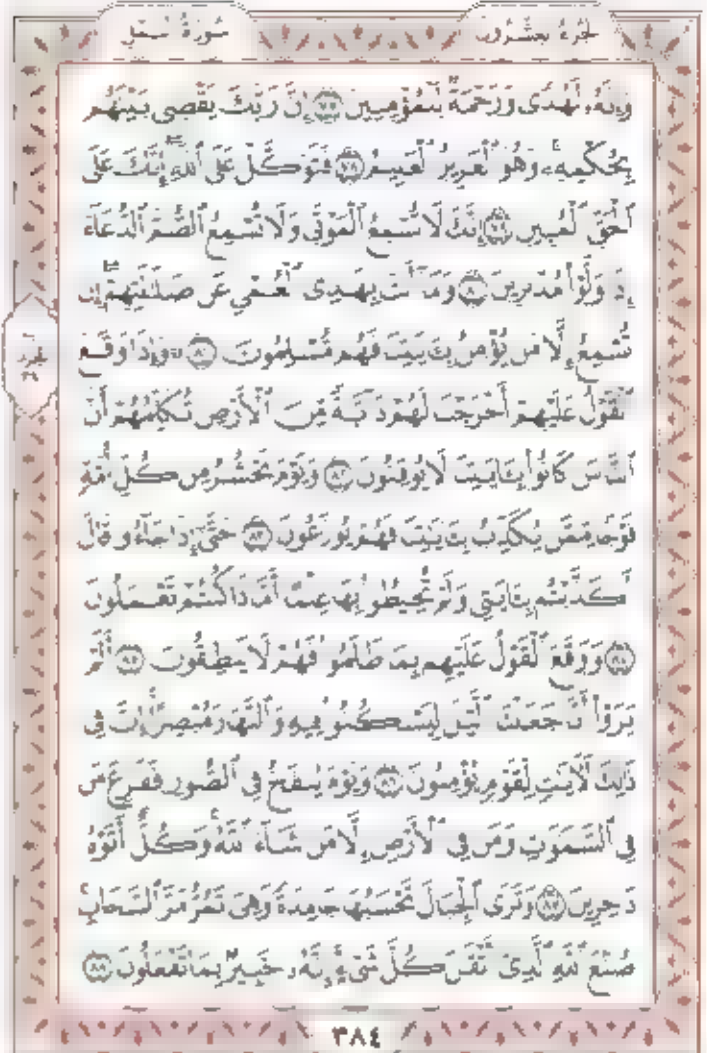 سُورَةُ النَّمْلِ
الجُزْءُ العِشْرُونَ
وَإِنَّهُۥ لَهُدًى وَرَحْمَةٌ لِّلْمُؤْمِنِينَ ٧٧ إِنَّ رَبَّكَ يَقْضِى بَيْنَهُم
بِحُكْمِهِۦ ۚ وَهُوَ ٱلْعَزِيزُ ٱلْعَلِيمُ ٧٨ فَتَوَكَّلْ عَلَى ٱللَّهِ ۖ إِنَّكَ عَلَى
ٱلْحَقِّ ٱلْمُبِينِ ٧٩ إِنَّكَ لَا تُسْمِعُ ٱلْمَوْتَىٰ وَلَا تُسْمِعُ ٱلصُّمَّ ٱلدُّعَآءَ
إِذَا وَلَّوْا۟ مُدْبِرِينَ ٨٠ وَمَآ أَنتَ بِهَـٰدِى ٱلْعُمْىِ عَن ضَلَـٰلَتِهِمْ ۖ إِن
تُسْمِعُ إِلَّا مَن يُؤْمِنُ بِـَٔايَـٰتِنَا فَهُم مُّسْلِمُونَ ٨١ ۞ وَإِذَا وَقَعَ
ٱلْقَوْلُ عَلَيْهِمْ أَخْرَجْنَا لَهُمْ دَآبَّةً مِّنَ ٱلْأَرْضِ تُكَلِّمُهُمْ أَنَّ
ٱلنَّاسَ كَانُوا۟ بِـَٔايَـٰتِنَا لَا يُوقِنُونَ ٨٢ وَيَوْمَ نَحْشُرُ مِن كُلِّ أُمَّةٍ
فَوْجًا مِّمَّن يُكَذِّبُ بِـَٔايَـٰتِنَا فَهُمْ يُوزَعُونَ ٨٣ حَتَّىٰٓ إِذَا جَآءُو قَالَ
أَكَذَّبْتُم بِـَٔايَـٰتِى وَلَمْ تُحِيطُوا۟ بِهَا عِلْمًا أَمَّاذَا كُنتُمْ تَعْمَلُونَ
٨٤ وَوَقَعَ ٱلْقَوْلُ عَلَيْهِم بِمَا ظَلَمُوا۟ فَهُمْ لَا يَنطِقُونَ ٨٥ أَلَمْ
يَرَوْا۟ أَنَّا جَعَلْنَا ٱلَّيْلَ لِيَسْكُنُوا۟ فِيهِ وَٱلنَّهَارَ مُبْصِرًا ۚ إِنَّ فِى
ذَٰلِكَ لَـَٔايَـٰتٍ لِّقَوْمٍ يُؤْمِنُونَ ٨٦ وَيَوْمَ يُنفَخُ فِى ٱلصُّورِ فَفَزِعَ مَن
فِى ٱلسَّمَـٰوَٰتِ وَمَن فِى ٱلْأَرْضِ إِلَّا مَن شَآءَ ٱللَّهُ ۚ وَكُلٌّ أَتَوْهُ
دَٰخِرِينَ ٨٧ وَتَرَى ٱلْجِبَالَ تَحْسَبُهَا جَامِدَةً وَهِىَ تَمُرُّ مَرَّ ٱلسَّحَابِ ۚ
صُنْعَ ٱللَّهِ ٱلَّذِىٓ أَتْقَنَ كُلَّ شَىْءٍ ۚ إِنَّهُۥ خَبِيرٌۢ بِمَا تَفْعَلُونَ ٨٨
٣٨٤